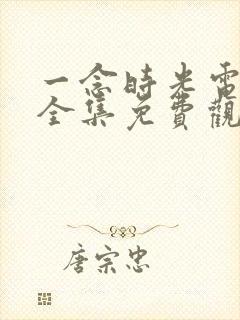 一念時光電
全集免費觀
唐宗忠